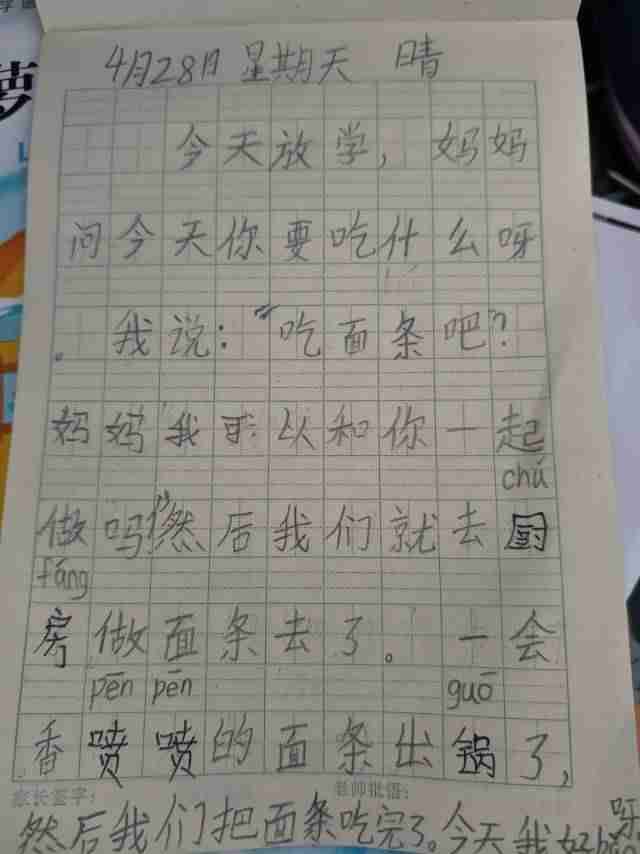 4月28日 星期天 晴
今天放学，妈妈
问今天你要吃什么呀
。我说：“吃面条吧”？
妈妈“我可以和你一起
chú
做吗”然后我们就去厨
fáng
房做面条去了。一会
pēn pēn guō
香喷喷的面条出锅了，
家长签字： 老师批语：
然后我们把面条吃完了。今天我好
呀